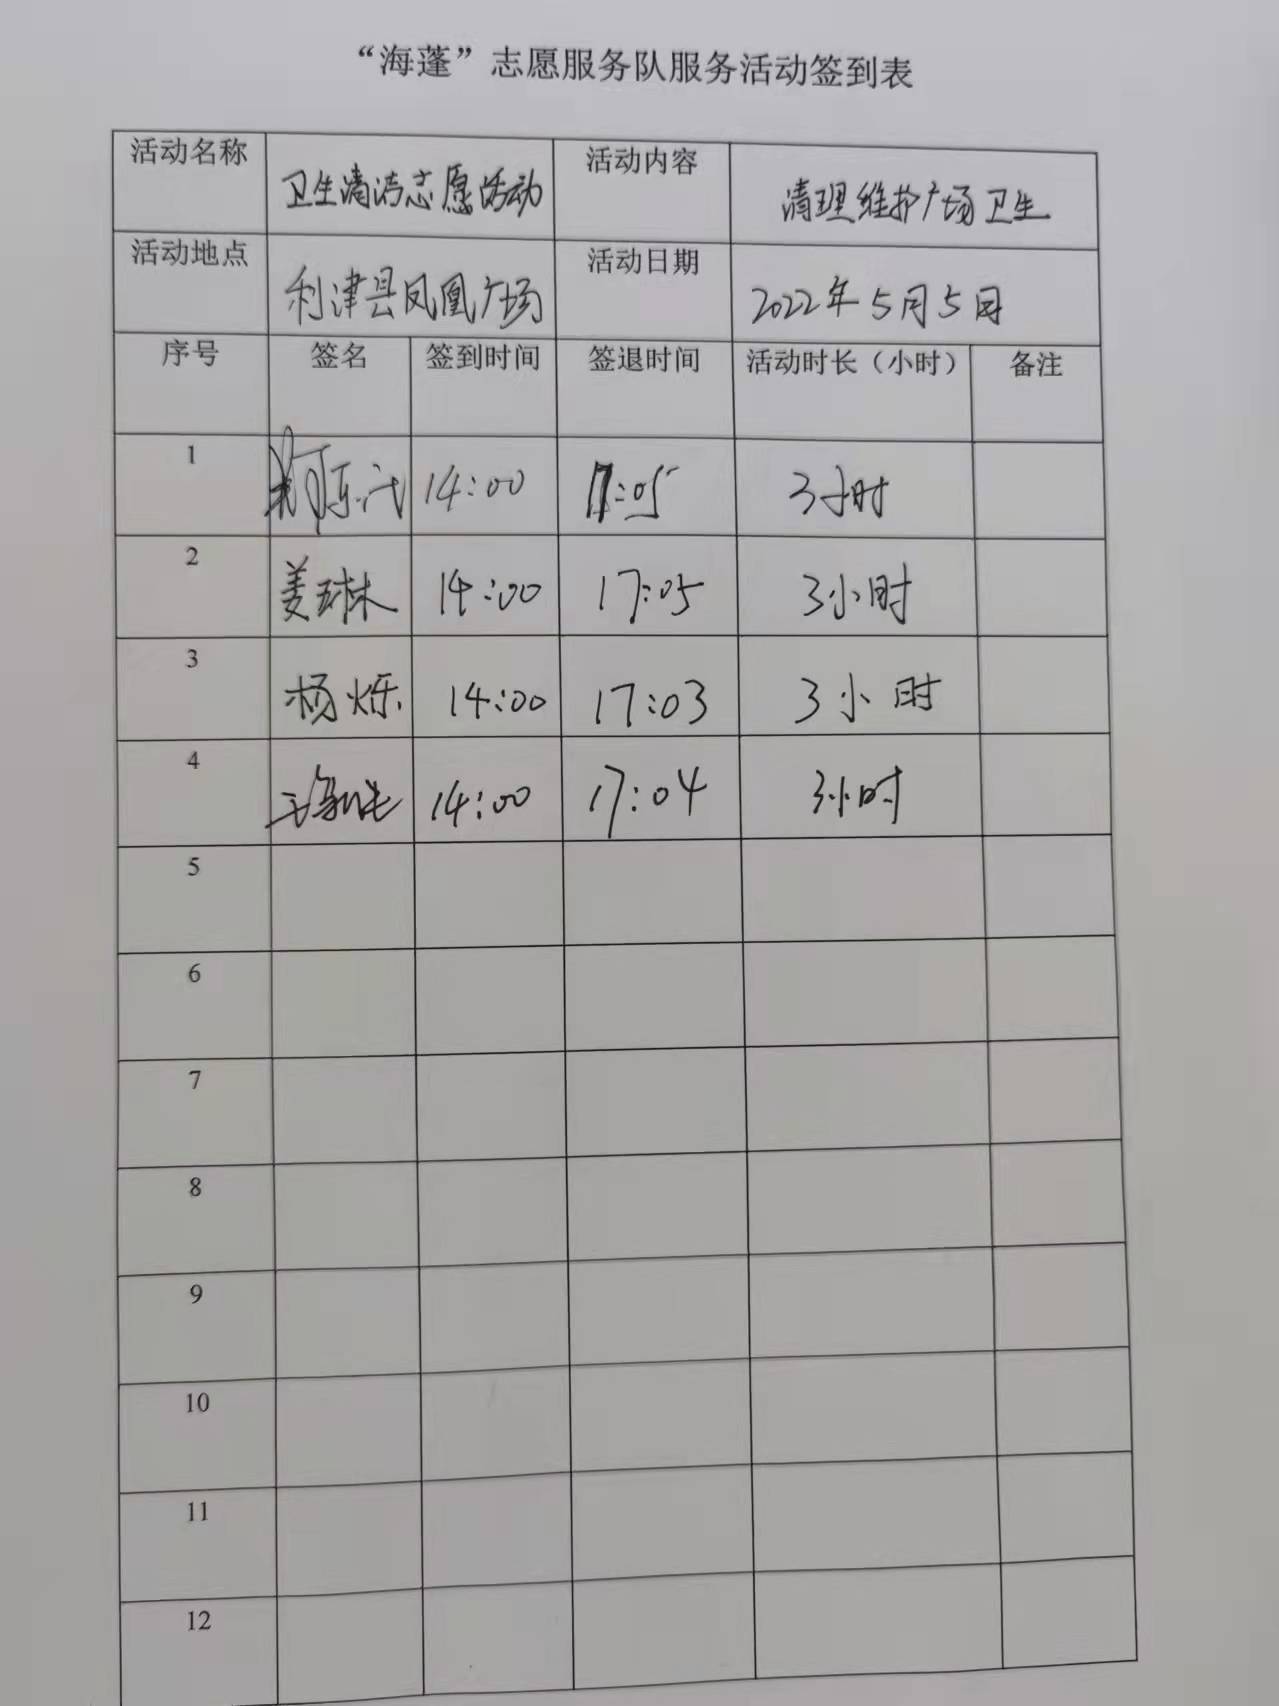 “海蓬”志愿服务队服务活动签到表
活动名称 卫生清洁志愿活动 活动内容 清理维护广场卫生
活动地点 利津县凤凰广场 活动日期 2022年5月5日
序号 签名 签到时间 签退时间 活动时长（小时） 备注
1 14:00 17:05 3小时
2 姜琳 14:00 17:05 3小时
3 杨烁 14:00 17:03 3小时
4 14:00 17:04 3小时
5
6
7
8
9
10
11
12